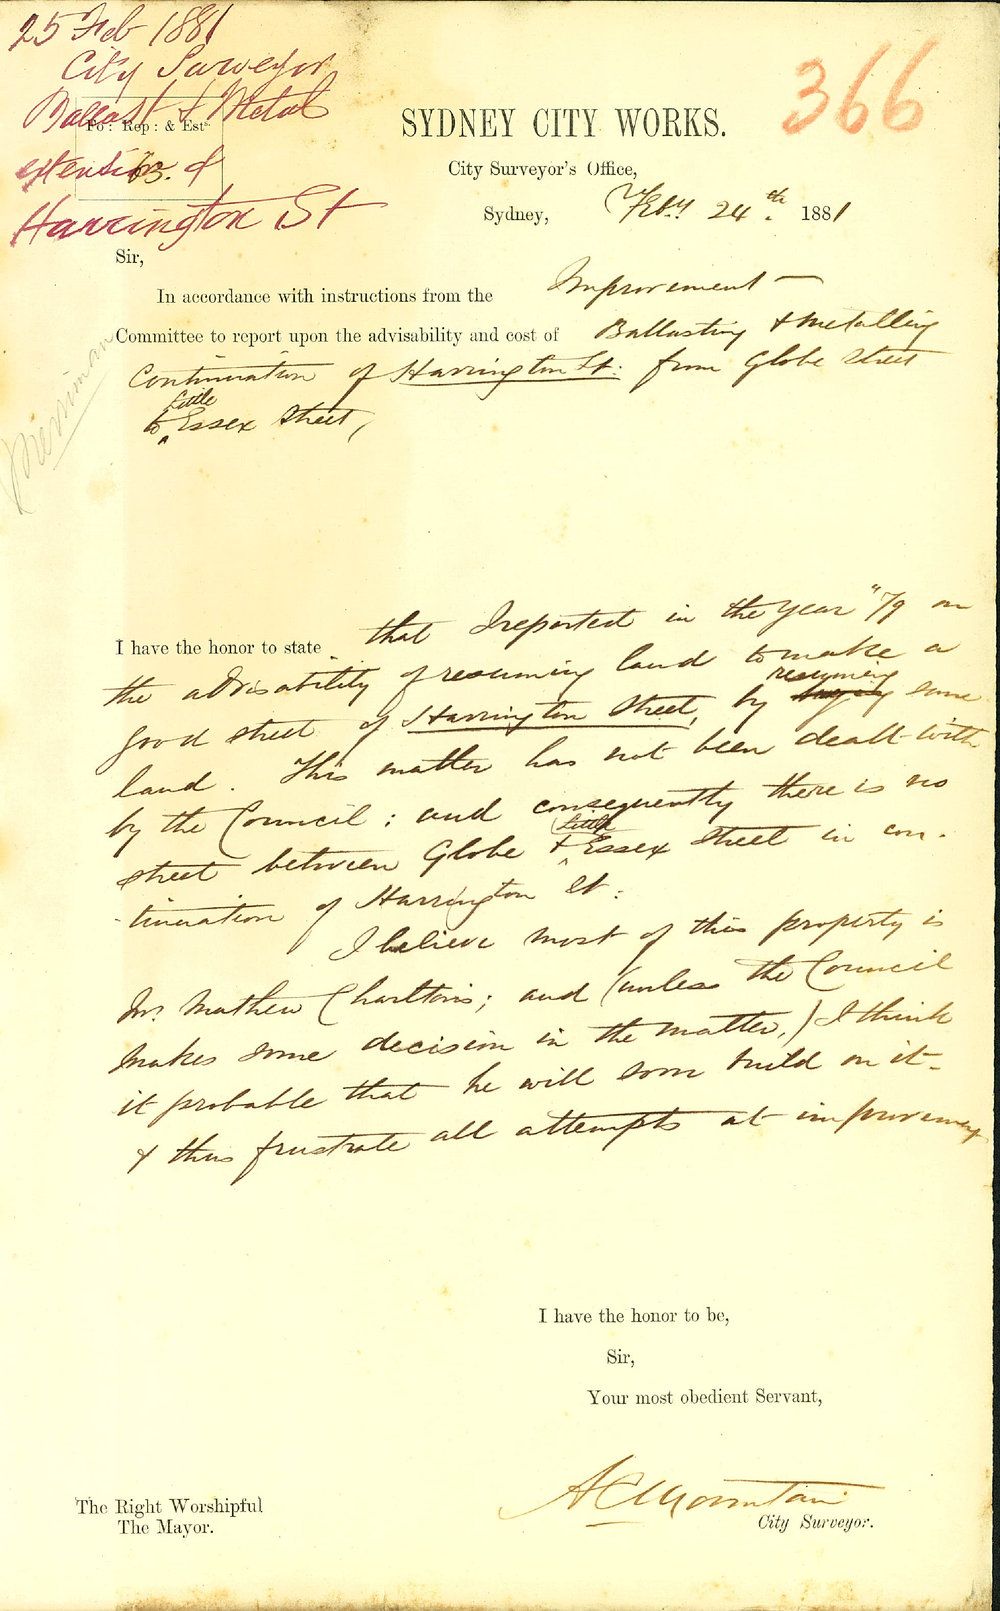 25 Feb 1881
City Surveyor
Ballast & Metal
Fo: Rep: & Est:
extension of
63.
Harrington St
366
SYDNEY CITY WORKS.
City Surveyor's Office,
Sydney, Feby. 24th. 1881
Merriman
Sir,
In accordance with instructions from the Improvement
Committee to report upon the advisability and cost of Ballasting & Metalling
Continuation of Harrington St: from Globe Street
to Little Essex Street,
I have the honor to state that I reported in the year "79 on
the advisability of resuming land to make a
good street of Harrington Street, by resuming some
land. This matter has not been dealt with
by the Council; and consequently there is no
street between Globe & Little Essex Street in con-
-tinuation of Harrington St:
I believe most of this property is
Mr. Mathew Charltons; and (unless the Council
makes some decision in the matter,) I think
it probable that he will soon build on it-
& thus frustrate all attempts at improvement
I have the honor to be,
Sir,
Your most obedient Servant,
A C Mountain
City Surveyor.
The Right Worshipful
The Mayor.